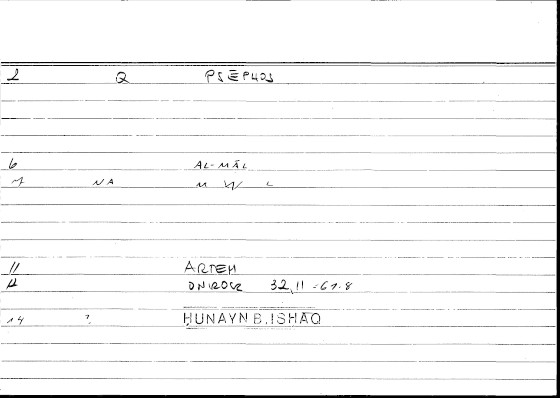 2 Q PSĒPHOS
6 AL-MĀL
7 NA M W L
11 ARTEM
12 ONIROCR 32,11 - 61.8
14 ? ḤUNAYN B. ISḤĀQ